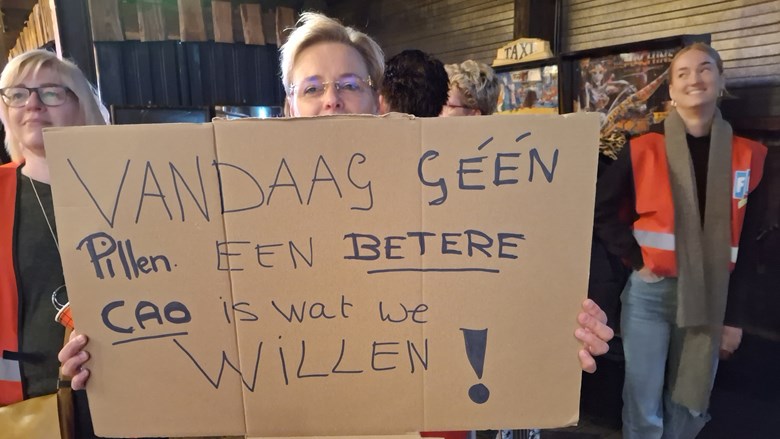 TAXI
VANDAAG GÉÉN
Pillen. EEN BETERE
CAO is wat we
WILLEN!